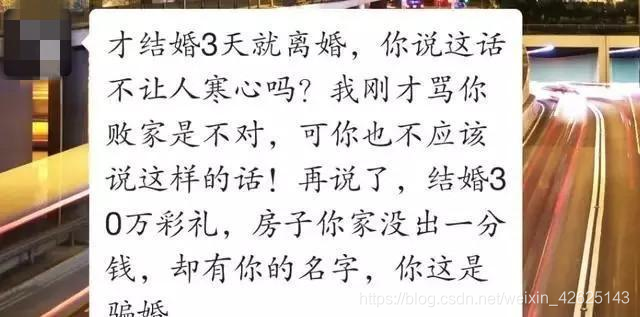 才结婚3天就离婚，你说这话
不让人寒心吗？我刚才骂你
败家是不对，可你也不应该
说这样的话！再说了，结婚3
0万彩礼，房子你家没出一分
钱，却有你的名字，你这是
骗婚
https://blog.csdn.net/weixin_42625143